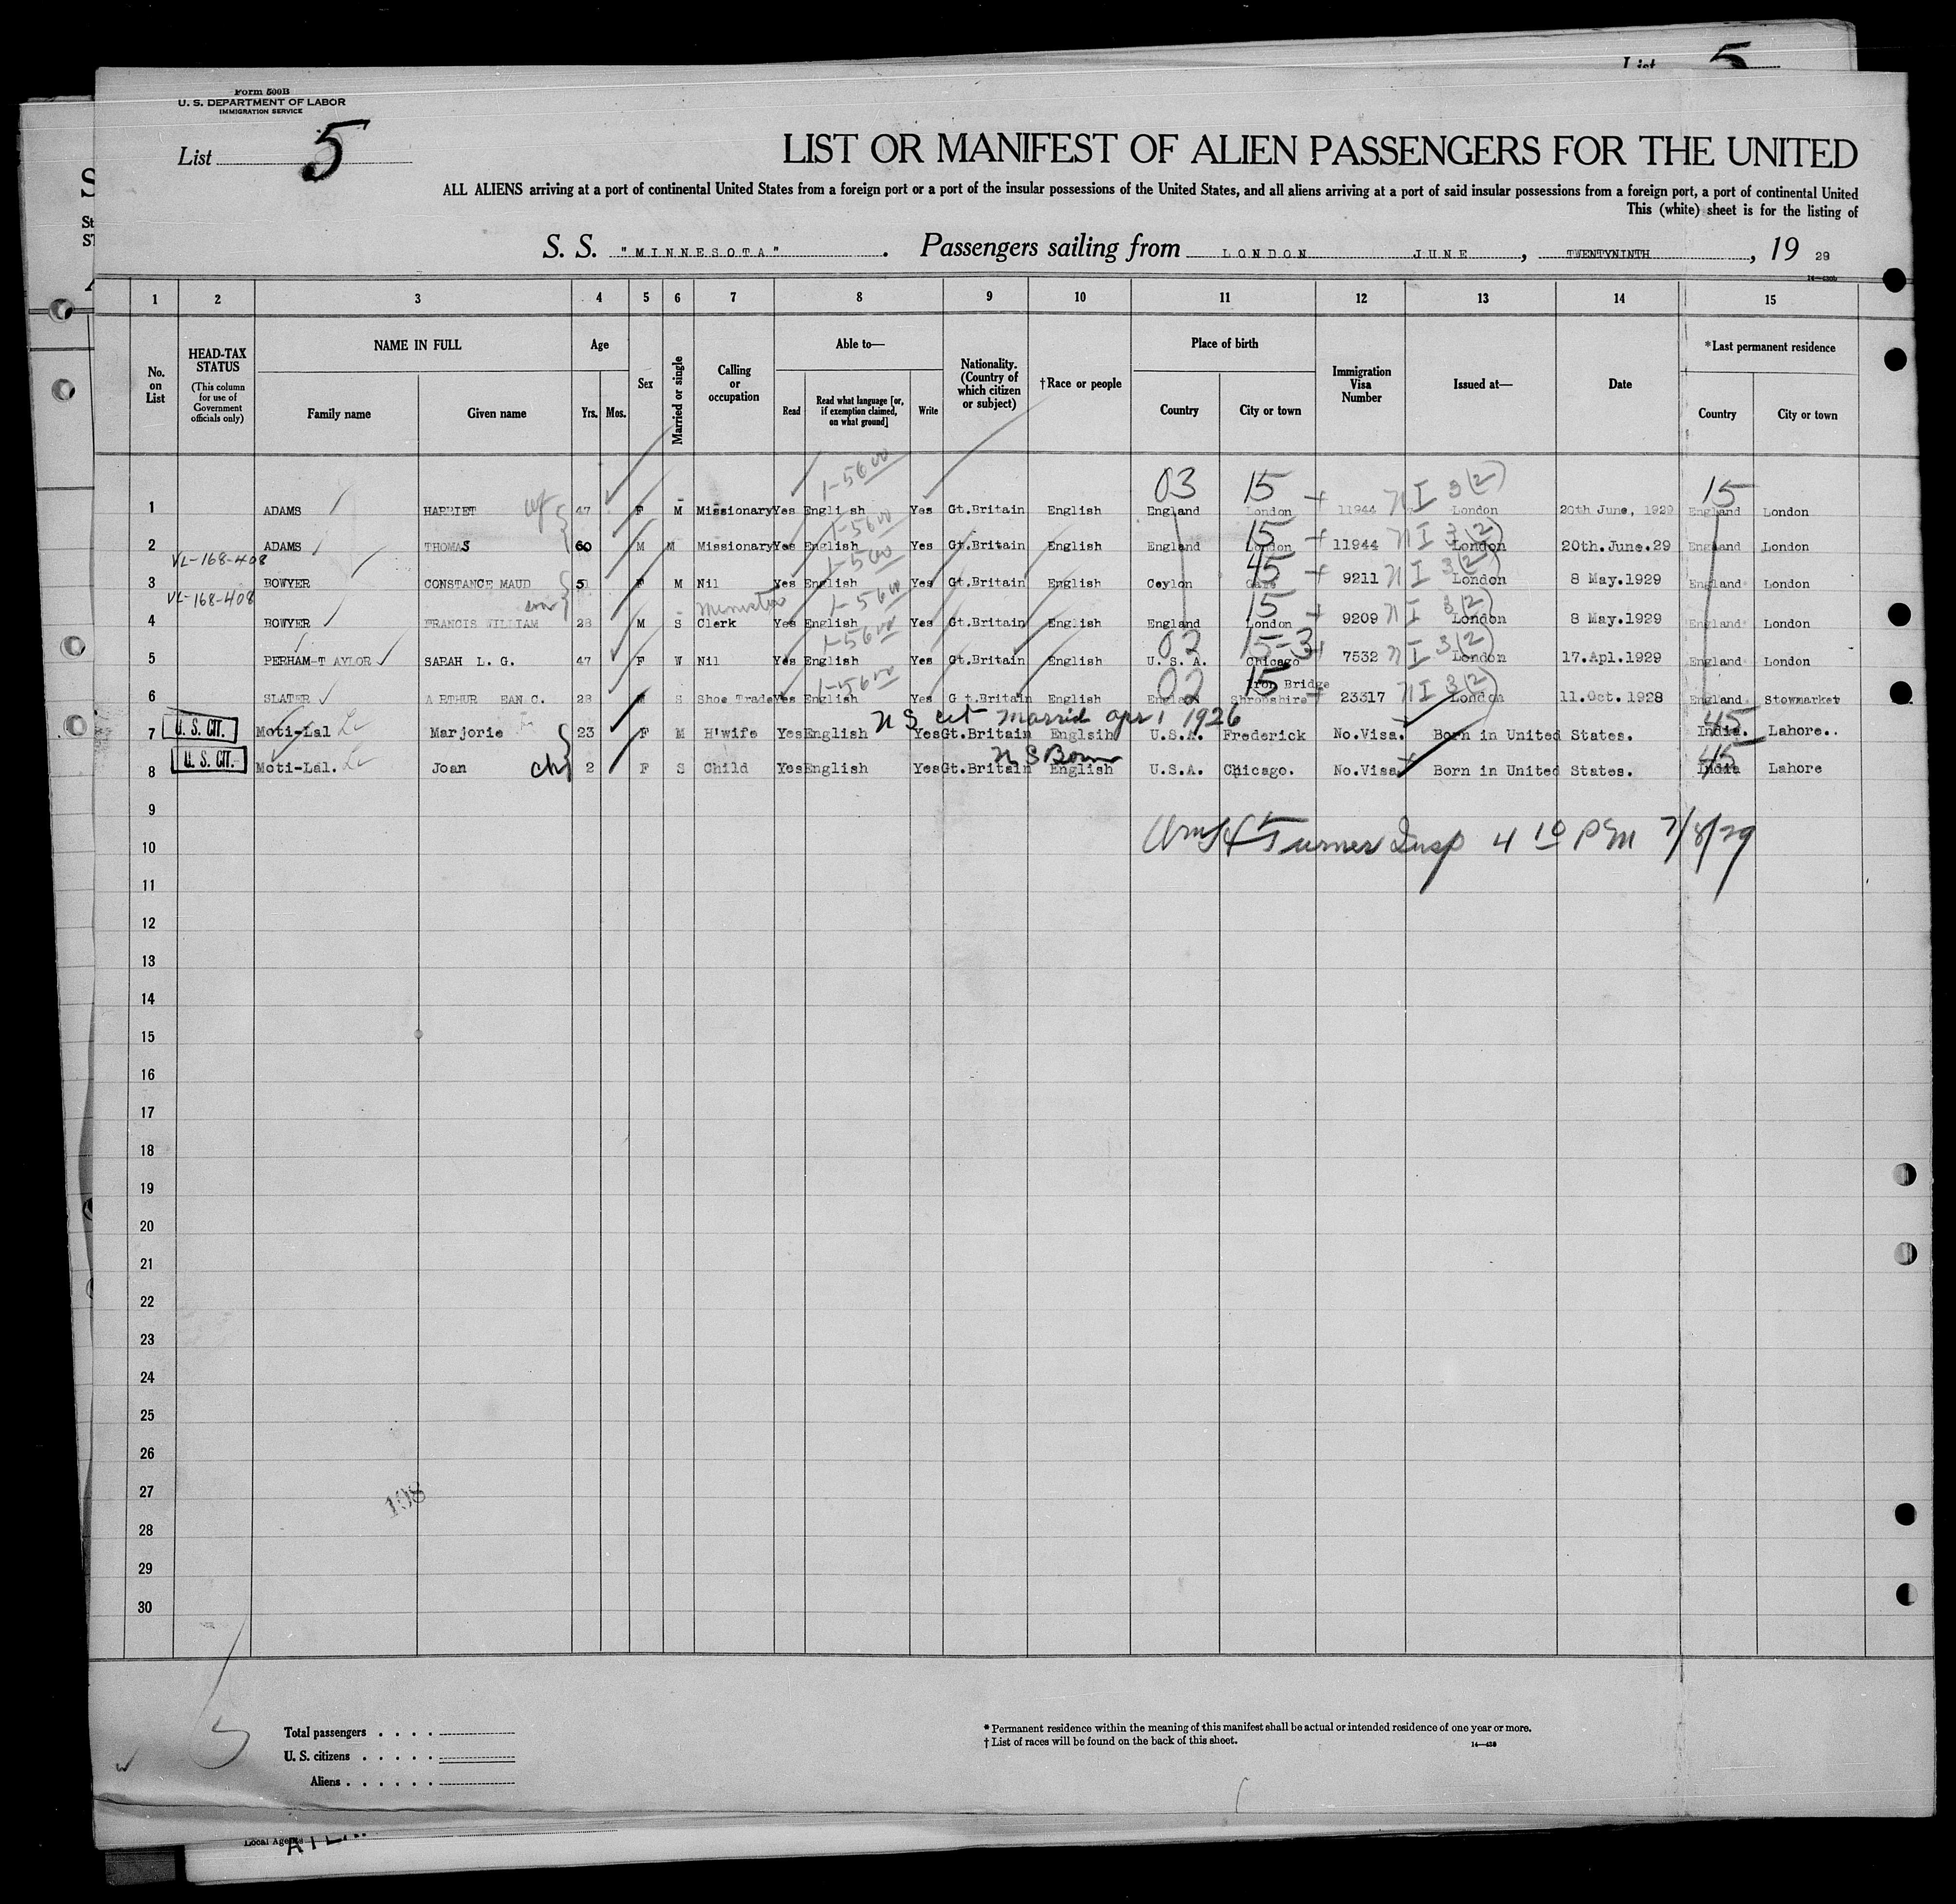 List 5
Form 500B
U. S. DEPARTMENT OF LABOR
IMMIGRATION SERVICE
List 5
LIST OR MANIFEST OF ALIEN PASSENGERS FOR THE UNITED
ALL ALIENS arriving at a port of continental United States from a foreign port or a port of the insular possessions of the United States, and all aliens arriving at a port of said insular possessions from a foreign port, a port of continental United
This (white) sheet is for the listing of
S. S. "MINNESOTA" . Passengers sailing from LONDON JUNE , TWENTYNINTH , 19 29
1 2 3 4 5 6 7 8 9 10 11 12 13 14 15
No. on List
HEAD-TAX STATUS (This column for use of Government officials only)
NAME IN FULL
Family name Given name
Age
Yrs. Mos.
Sex
Married or single
Calling or occupation
Able to—
Read
Read what language [or, if exemption claimed, on what ground]
Write
Nationality. (Country of which citizen or subject)
†Race or people
Place of birth
Country City or town
Immigration Visa Number
Issued at—
Date
*Last permanent residence
Country City or town
1-5600 03 15 NI 3(2) 15
1 ADAMS HARRIET wf 47 F M Missionary Yes English Yes Gt.Britain English England London 11944 London 20th June, 1929 England London
1-5600 15 NI 3(2)
2 ADAMS THOMAS 60 M M Missionary Yes English Yes Gt.Britain English England London 11944 London 20th.June.29 England London
VL-168-408 1-5600 45 NI 3(2)
3 BOWYER CONSTANCE MAUD 51 F M Nil Yes English Yes Gt.Britain English Ceylon 9211 London 8 May.1929 England London
VL-168-408 son Minister 1-5600 15 NI 3(2)
4 BOWYER FRANCIS WILLIAM 28 M S Clerk Yes English Yes Gt.Britain English England London 9209 London 8 May.1929 England London
1-5600 02 15-3 NI 3(2)
5 PERHAM-TAYLOR SARAH L. G. 47 F W Nil Yes English Yes Gt.Britain English U. S. A. Chicago 7532 London 17.Apl.1929 England London
1-5600 02 15 Iron Bridge NI 3(2)
6 SLATER ARTHUR EAN C. 28 M S Shoe Trade Yes English Yes Gt.Britain English England Shropshire 23317 London 11.Oct. 1928 England Stowmarket
U S cit married apr 1 1926 45
7 U. S. CIT. Moti-Lal Marjorie 23 F M H'wife Yes English Yes Gt.Britain Englsih U.S.A. Frederick No.Visa. Born in United States. India. Lahore..
U S Born 45
8 U. S. CIT. Moti-Lal. Joan ch 2 F S Child Yes English Yes Gt.Britain English U.S.A. Chicago. No.Visa. Born in United States. India Lahore
9
Wm H Turner Insp 4 10 PM 7/8/29
10
11
12
13
14
15
16
17
18
19
20
21
22
23
24
25
26
27
108
28
29
30
Total passengers . . . .
U. S. citizens . . . . .
Aliens . . . . . .
* Permanent residence within the meaning of this manifest shall be actual or intended residence of one year or more.
† List of races will be found on the back of this sheet.
14—430
Local Agents